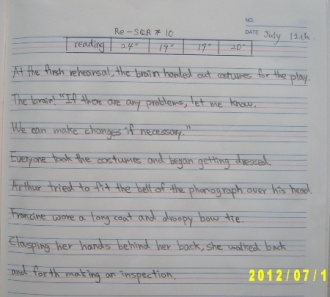 NO.
Re-S&R #10
DATE July 12th.
reading 24" 19" 19" 20"
At the final rehearsal, the brain handed out costumes for the play.
The brain: "If there are any problems, let me know.
We can make changes if necessary."
Everyone took the costumes and began getting dressed.
Arthur tried to fit the bell of the phonograph over his head.
Francine wore a long coat and droopy bow tie.
Clasping her hands behind her back, she walked back
and forth making an inspection.
2012/07/1